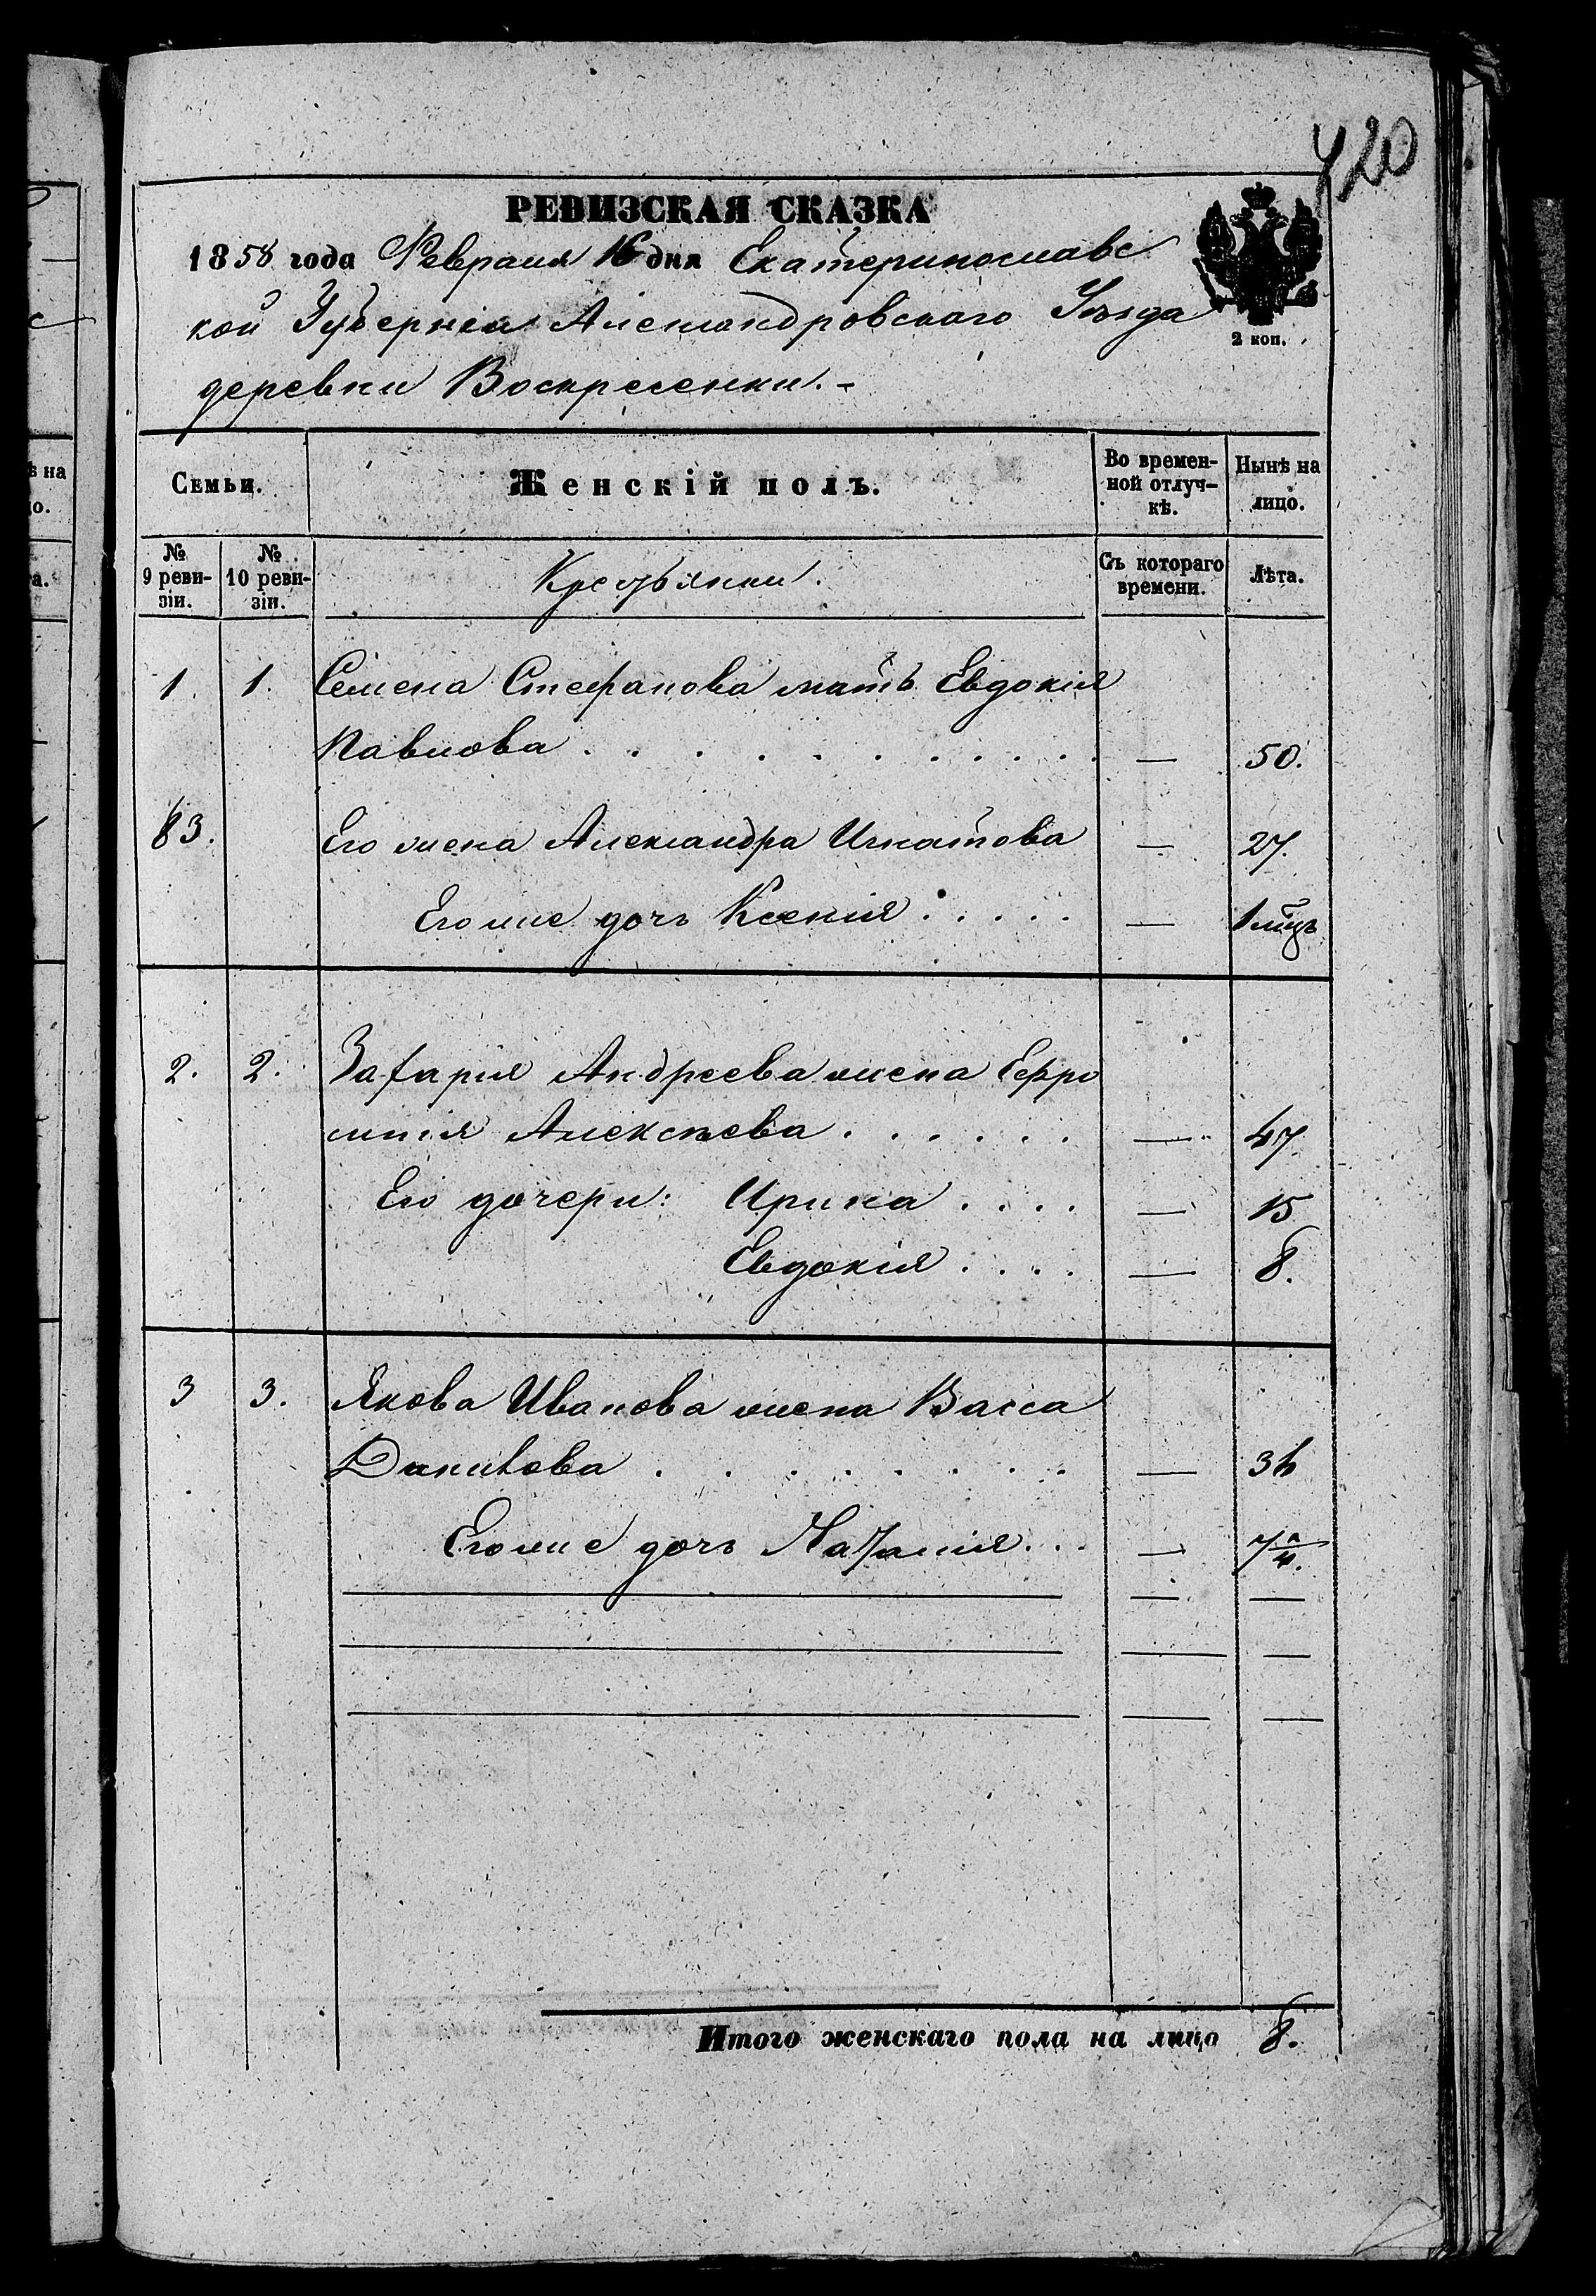 420
РЕВИЗСКАЯ СКАЗКА
1858 года Февраля 16 дня Екатеринославс
кой Губерніи Александровскаго Уѣзда
2 коп.
деревни Воскресенки.-
Семьи. Женскій полъ. Во времен-ной отлуч-кѣ. Нынѣ на лицо.
№ 9 реви-зіи. № 10 реви-зіи. Крестьянки. Съ котораго времени. Лѣта.
1. 1. Семена Стефанова мать Евдокія
Павлова . . . . . . . . . — 50.
83. Его жена Александра Игнатова — 27.
Егоже дочь Ксенія . . . . . — 1 мѣць
2. 2. Захарія Андреева жена Евфро
Алексѣева . . . . . . — 47
Его дочери: Ирина . . . . — 15
Евдокія . . . . — 8.
3 3. Якова Иванова жена Васса
Данилова . . . . . . . . — 36
Егоже дочь Наталія . . . —
Итого женскаго пола на лицо 8.
ѣ на
о.
а.